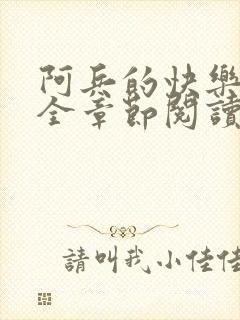 阿兵的快樂
全章節閱讀
請叫我小佳佳